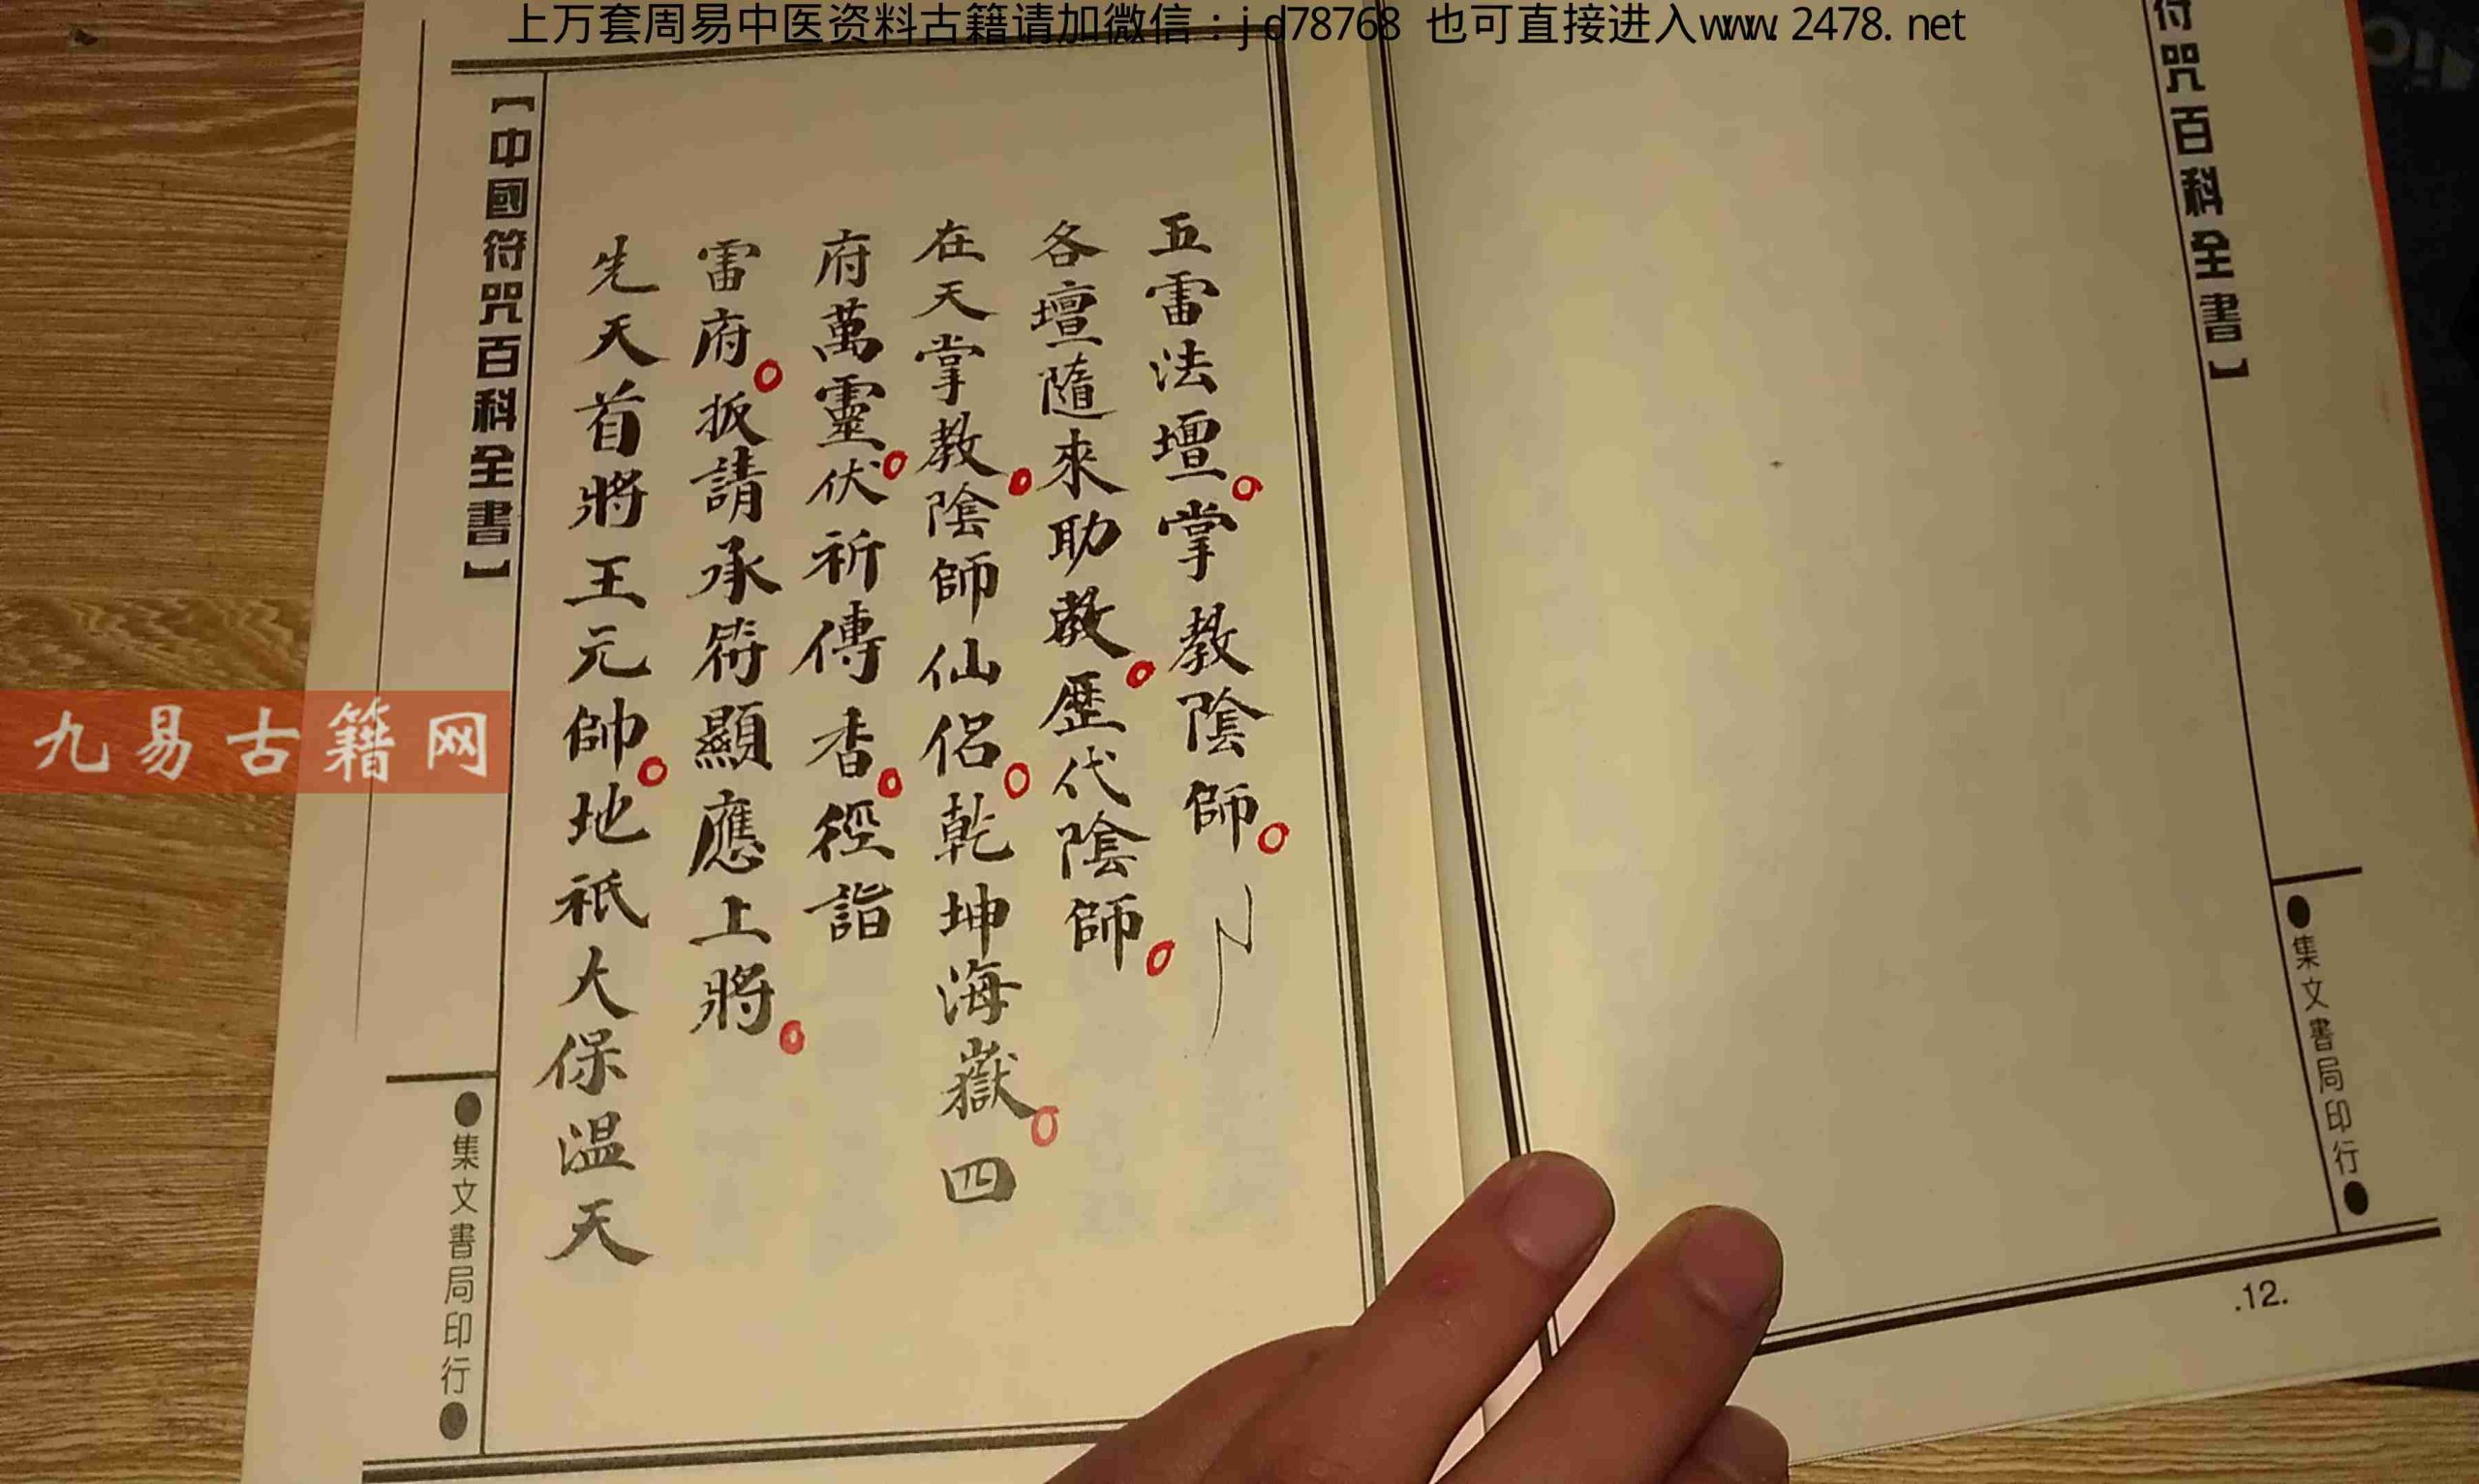 上万套周易中医资料古籍请加微信：jd78768 也可直接进入www.2478.net
符咒百科全書】
●集文書局印行●
.12.
五雷法壇。掌教陰師。
各壇隨來助教。歷代陰師。
在天掌教。陰師仙侶。乾坤海嶽。四
府萬靈。伏祈傳香。徑詣
雷府。扳請承符顯應上將。
先天首將王元帥。地祇大保温天
【中國符咒百科全書】
●集文書局印行●
九易古籍网